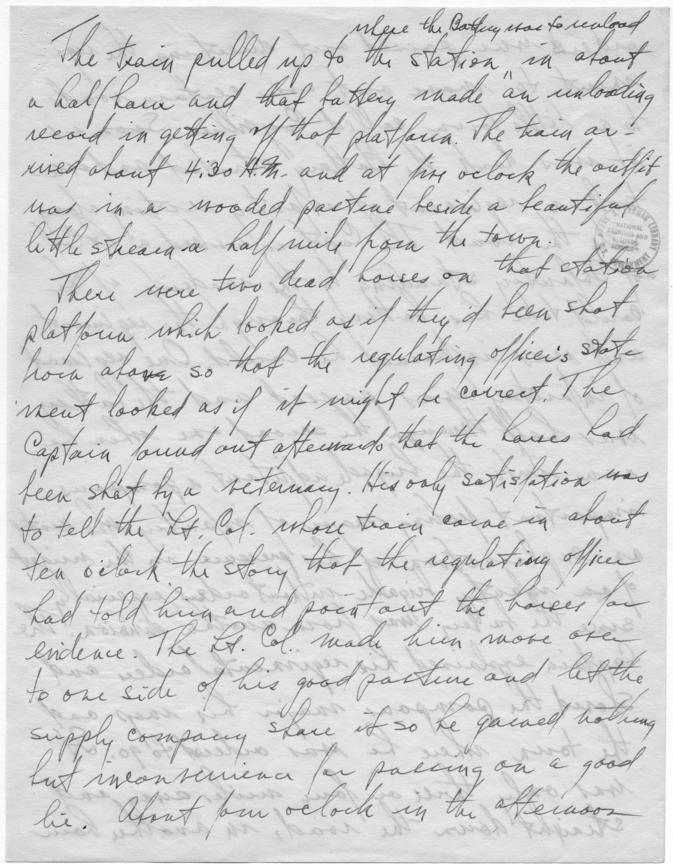 where the Battery was to unload
The train pulled up to the station in about
a half hour and that battery made an unloading
record in getting off that platform. The train ar-
rived about 4:30 A.M. and at five oclock the outfit
was in a wooded pasture beside a beautiful
little stream a half mile from the town.
There were two dead horses on that station
platform which looked as if they'd been shot
from above so that the regulating officer's state
ment looked as if it might be correct. The
Captain found out afterwards that the horses had
been shot by a veternary. His only satisfation was
to tell the Lt. Col. whose train came in about
ten oclock the story that the regulating officer
had told him and point out the horses for
evidence. The Lt. Col. made him move over
to one side of his good pasture and let the
supply company share it so he gained nothing
but inconvenience for passing on a good
lie. About four oclock in the afternoon